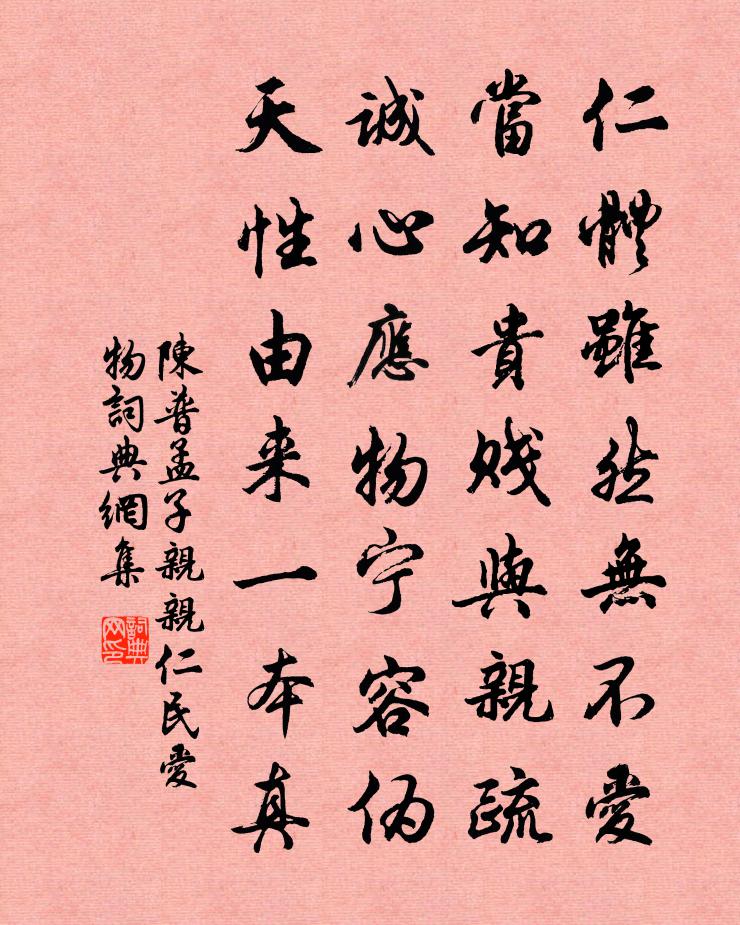 仁體雖然無不愛
當知貴賤與親疏
誠心應物宁容伪
天性由来一本真
陳普孟子親親仁民愛
物詞典網集
詞典网印